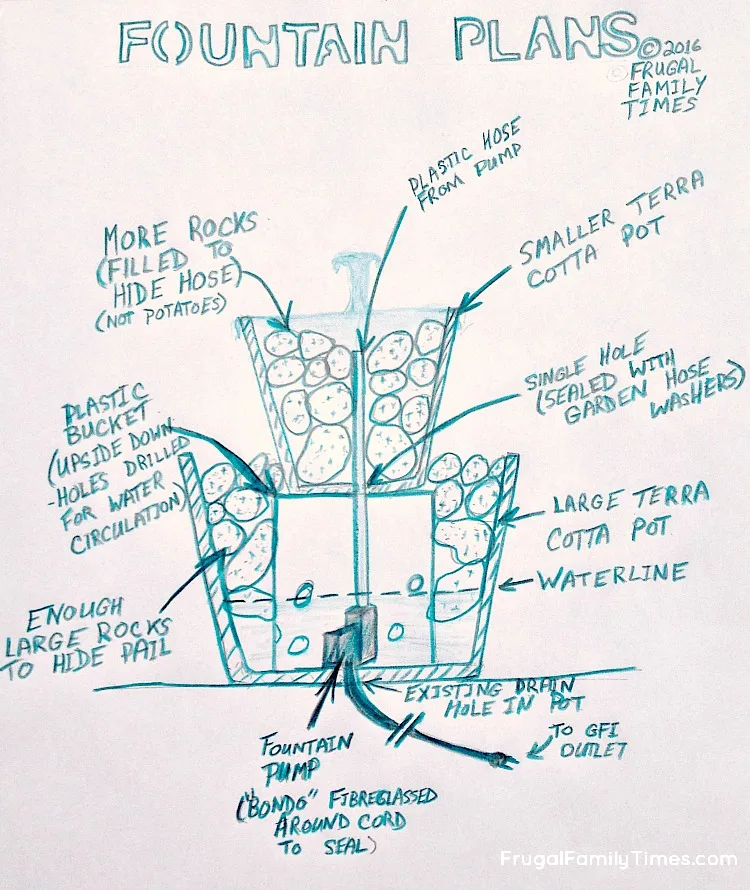 FOUNTAIN PLANS
© 2016
© FRUGAL
FAMILY
TIMES
PLASTIC HOSE
FROM PUMP
MORE ROCKS
(FILLED TO
HIDE HOSE)
(NOT POTATOES)
SMALLER TERRA
COTTA POT
SINGLE HOLE
(SEALED WITH
GARDEN HOSE
WASHERS)
PLASTIC
BUCKET
(UPSIDE DOWN
-HOLES DRILLED
FOR WATER
CIRCULATION)
LARGE TERRA
COTTA POT
WATERLINE
ENOUGH
LARGE ROCKS
TO HIDE PAIL
EXISTING DRAIN
HOLE IN POT
TO GFI
OUTLET
FOUNTAIN
PUMP
("BONDO" FIBREGLASSED
AROUND CORD
TO SEAL)
FrugalFamilyTimes.com